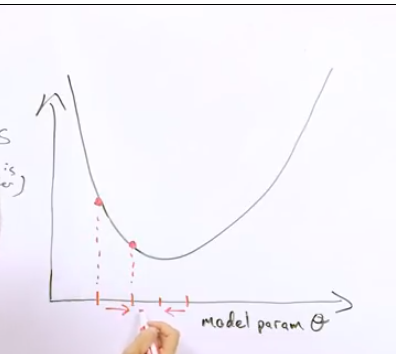 s
is
model param θ